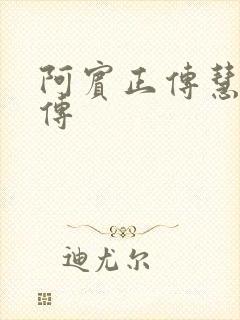 阿賓正傳慧
傳
迪尤尔